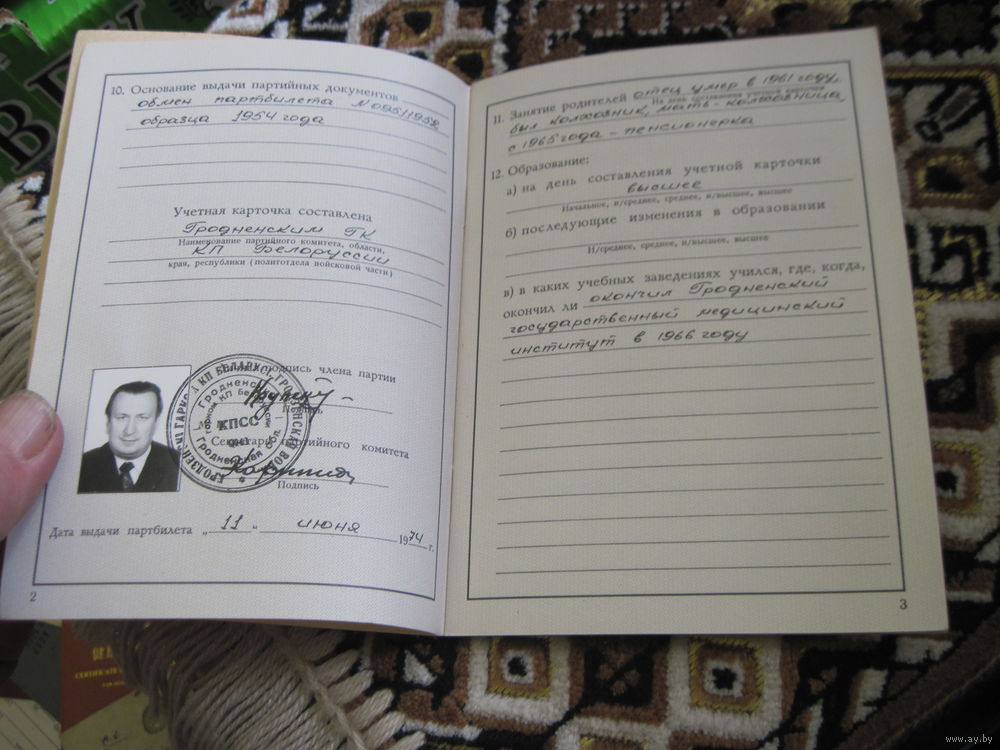 10. Основание выдачи партийных документов
обмен партбилета № 09611952
образца 1954 года
Учетная карточка составлена
Гродненским ГК
Наименование партийного комитета, области,
КП Белоруссии
края, республики (политотдела войсковой части)
Личная подпись члена партии
Подпись
КПСС
Секретарь партийного комитета
Подпись
Дата выдачи партбилета „ 11 “ июня 1974 г.
2
11. Занятие родителей отец умер в 1961 году,
На день составления учетной карточки
был колхозник, мать - колхозница,
с 1965 года - пенсионерка
12. Образование:
а) на день составления учетной карточки
высшее
Начальное, н/среднее, среднее, н/высшее, высшее
б) последующие изменения в образовании
Н/среднее, среднее, н/высшее, высшее
в) в каких учебных заведениях учился, где, когда,
окончил ли окончил Гродненский
государственный медицинский
институт в 1966 году
3
CERTIFICATE
www.ay.by